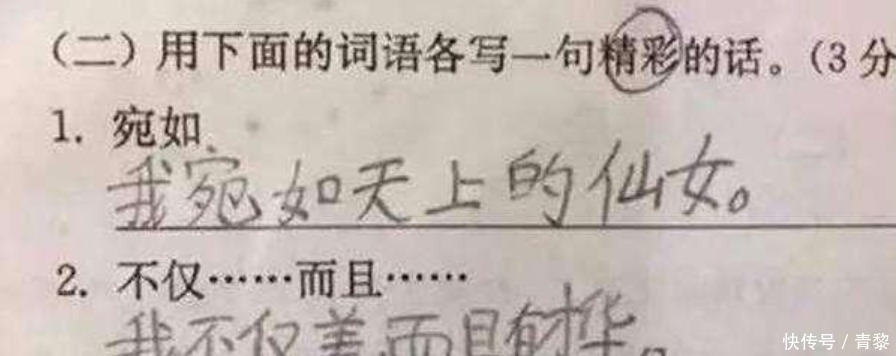 （二）用下面的词语各写一句精彩的话。（3分
1. 宛如
我宛如天上的仙女。
2. 不仅……而且……
我不仅美而且有才华。
快传号 / 青黎